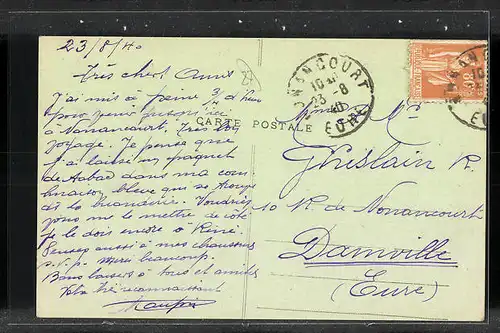 23/8/40
27
Très chers Amis
J'ai mis à peine 3/4 d'heure
pour venir jusqu'ici
à Nonancourt. Très bon
voyage. Je pense que
j'ai laissé un paquet
de tabac dans ma com-
binaison bleue qui se trouve
ds la buanderie. Voudriez
vous me le mettre de côté
je le dois encore à René.
Pensez aussi à mes chaussures
s.v.p. Merci beaucoup.
Bons baisers à tous et amitiés
Votre très reconnaissant
CARTE POSTALE
NONANCOURT
10
23 -8
40
EURE
Ghislain R.
10 R. de Nonancourt
Damville
(Eure)